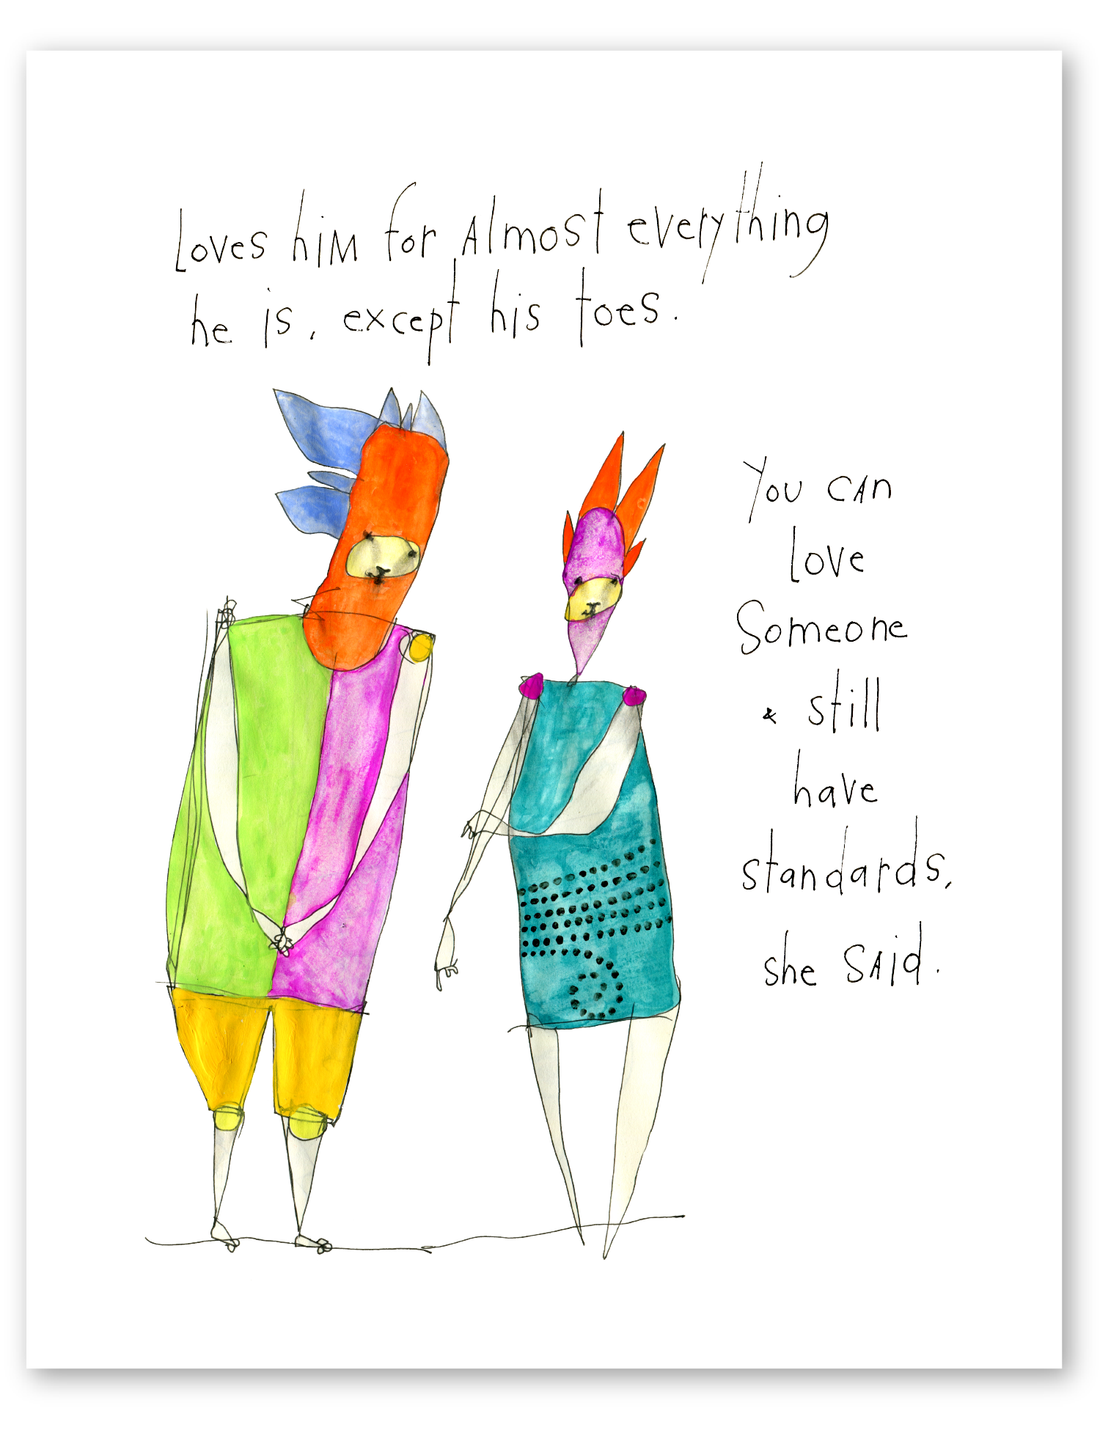 Loves hiM for Almost everything
he is, except his toes.
You cAn
love
Someone
& still
have
standards,
she sAid.